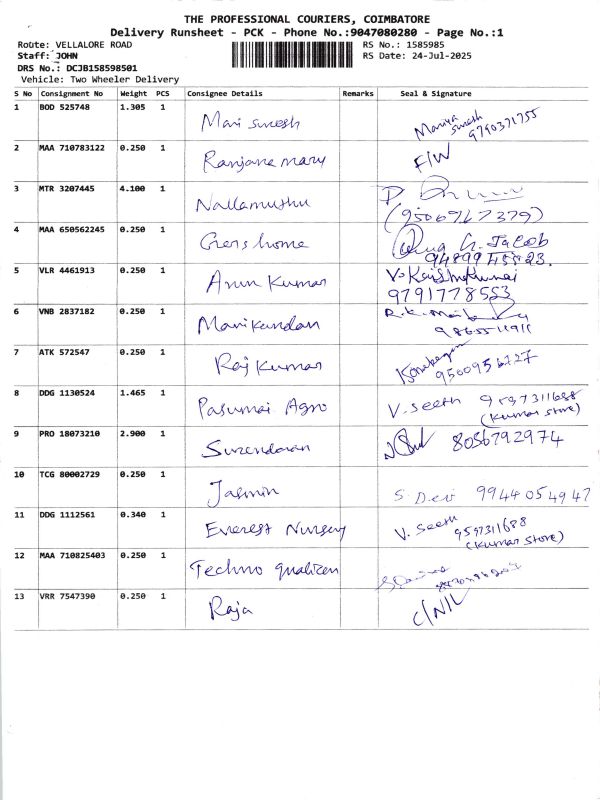 THE PROFESSIONAL COURIERS, COIMBATORE
Delivery Runsheet - PCK - Phone No.:9047080280 - Page No.:1
Route: VELLALORE ROAD RS No.: 1585985
Staff: JOHN RS Date: 24-Jul-2025
DRS No.: DCJB158598501
Vehicle: Two Wheeler Delivery
S No Consignment No Weight PCS Consignee Details Remarks Seal & Signature
1 BOD 525748 1.305 1 Mari suresh Mariya suresh 9790371755
2 MAA 710783122 0.250 1 Ranjana mary F/W
3 MTR 3207445 4.100 1 Nallamuthu
4 MAA 650562245 0.250 1 Gers home G. Jacob
5 VLR 4461913 0.250 1 Arun Kumar 9791778553
6 VNB 2837182 0.250 1 Manikandan
7 ATK 572547 0.250 1 Raj Kumar
8 DDG 1130524 1.465 1 Pasumai Agro V. Seeth 9597311688
(Kumar Store)
9 PRO 18073210 2.900 1 Surendaran 8056792974
10 TCG 80002729 0.250 1 Jasmin S. Devi 9944054947
11 DDG 1112561 0.340 1 Everest Nursery V. Seeth
9597311688
(Kumar Store)
12 MAA 710825403 0.250 1 Techno
13 VRR 7547390 0.250 1 Raja C/N/L